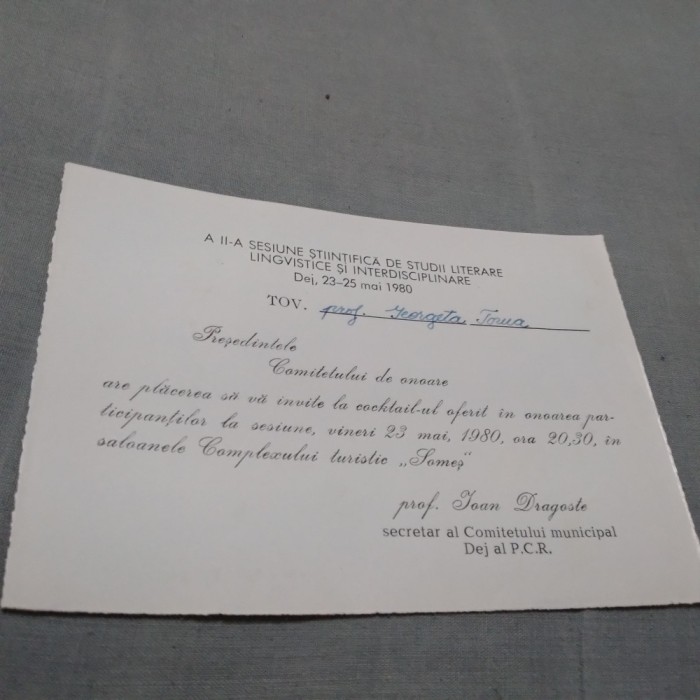 A II-A SESIUNE ȘTIINȚIFICĂ DE STUDII LITERARE
LINGVISTICE ȘI INTERDISCIPLINARE
Dej, 23–25 mai 1980
TOV. prof. Georgeta
Președintele
Comitetului de onoare
are plăcerea să vă invite la cocktail-ul oferit în onoarea par-
ticipanților la sesiune, vineri 23 mai, 1980, ora 20,30, în
saloanele Complexului turistic „Someș"
prof. Ioan Dragoste
secretar al Comitetului municipal
Dej al P.C.R.